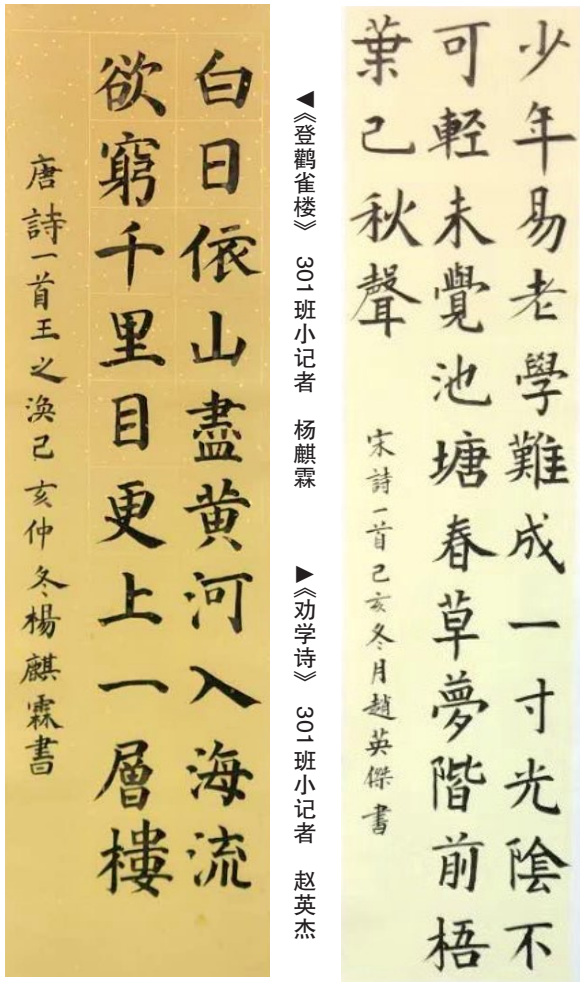 白日依山盡黃河入海流
欲窮千里目更上一層樓
唐詩一首王之渙己亥仲冬楊麒霖書
◀《登鹳雀楼》 301班小记者 杨麒霖
▶《劝学诗》 301班小记者 赵英杰
少年易老學難成一寸光陰不
可輕未覺池塘春草夢階前梧
葉己秋聲
宋詩一首己亥冬月趙英傑書